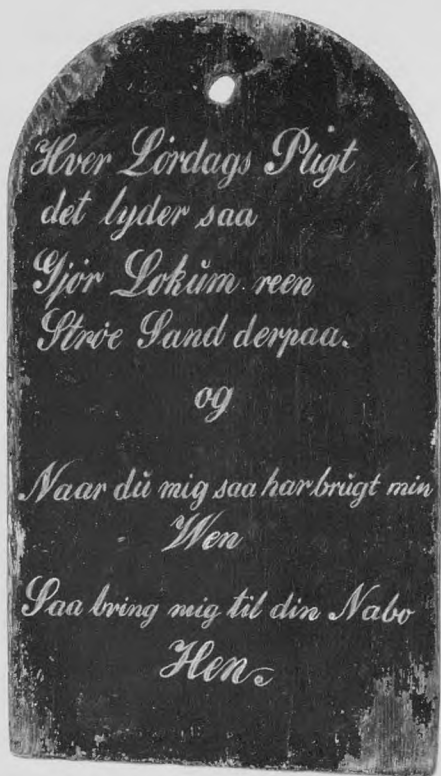 Hver Lørdags Pligt
det lyder saa
Gjør Lokŭm reen
Strøe Sand derpaa.
og
Naar dŭ mig saa har brŭgt min
Wen
Saa bring mig til din Nabo
Hen.